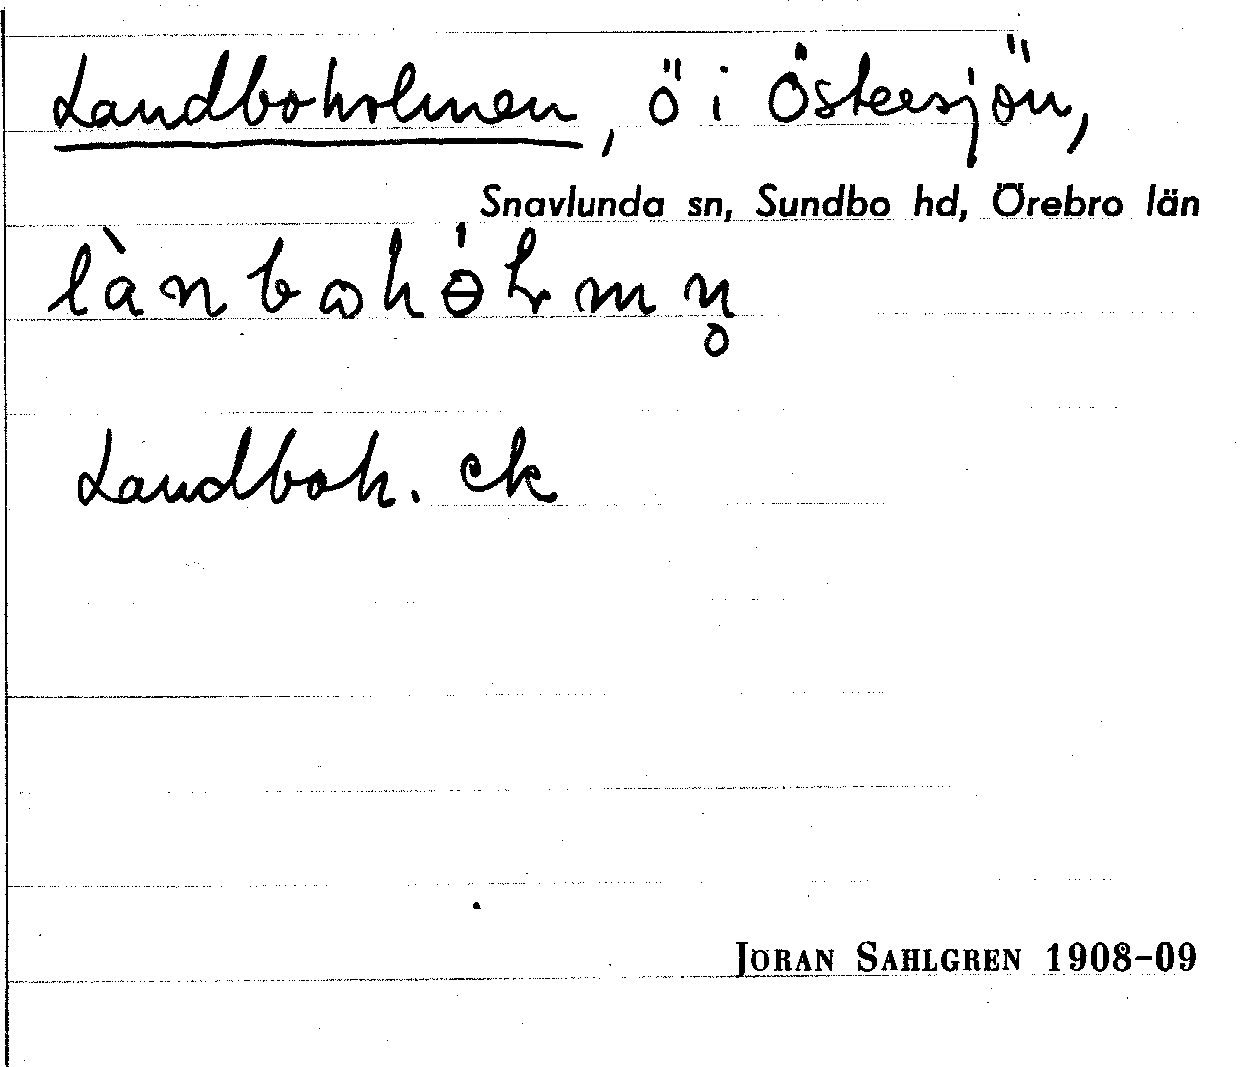 Landboholmen, ö i Östersjön,
Snavlunda sn, Sundbo hd, Örebro län
Landboh. ek
JÖRAN SAHLGREN 1908-09